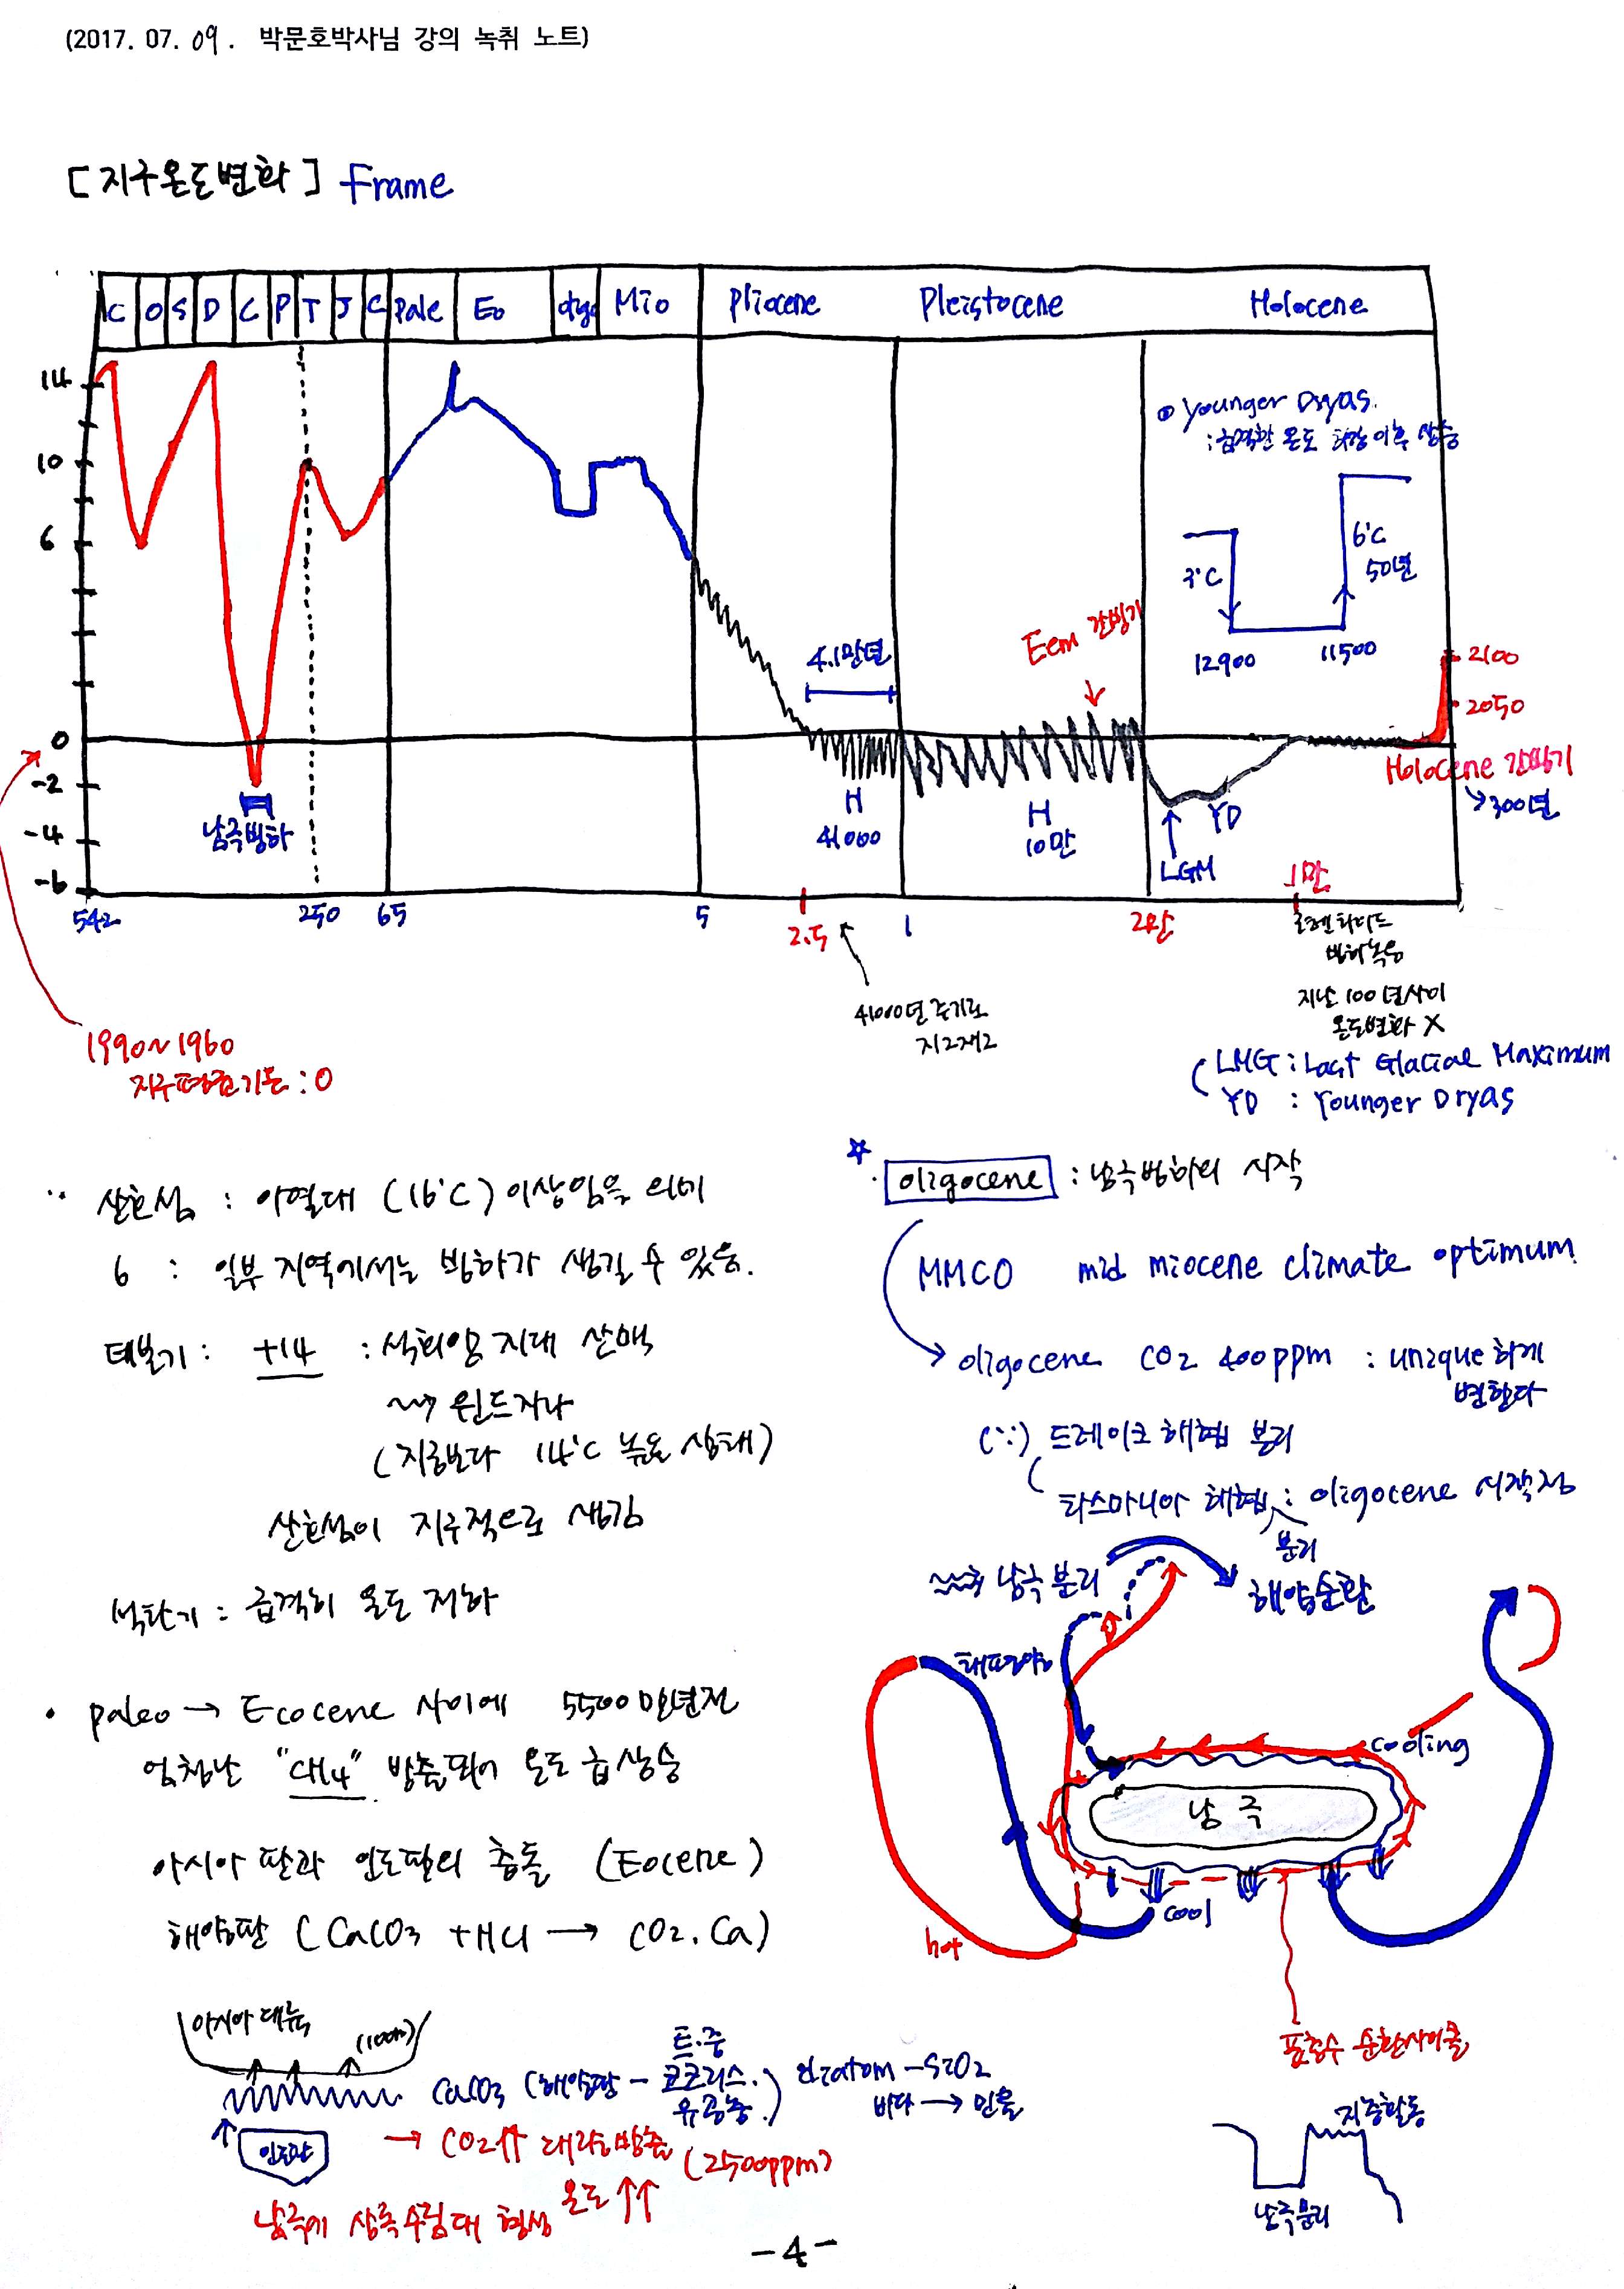 (2017. 07. 09. 박문호박사님 강의 녹취 노트)
[지구온도변화] Frame
C O S D C P T J C Pale Eo oligo Mio Pliocene Pleistocene Holocene
14
10
6
0
-2
-4
-6
남극빙하
4.1만년
Eem 간빙기
Younger Dryas.
: 급격한 온도 하강 이후 상승
3°C
6°C
50년
12900
11500
2100
2050
Holocene 간빙기
→300년
H
41000
H
10만
LGM
YD
542
250
65
5
2.5
1
2만
1만
빙하녹음
41000년 주기로
지그재그
지난 100년사이
온도변화 X
1990~1960
지구평균기온 : 0
LMG : Last Glacial Maximum
YD : Younger Dryas
산호섬 : 아열대 (16°C) 이상임을 의미
6 : 일부 지역에서는 빙하가 생길 수 있음.
데본기 : +14 : 석회암 지대 산맥
윈드자나
(지금보다 14°C 높은 상태)
산호섬이 지구적으로 생김
석탄기 : 급격히 온도 저하
• paleo → Ecocene 사이에 5500만년전
엄청난 "CH4" 방출되어 온도 급상승
아시아 판과 인도판의 충돌 (Eocene)
해양판 (CaCO3 + HCl → CO2, Ca)
아시아 대륙
(100m)
인도판
CaCO3 (해양판 - 코코리스. 유공충)
diatom - SiO2
바다 → 민물
→ CO2↑↑ 대량방출 (2500ppm)
온도 ↑↑
남극에 상록수림대 형성
☆ oligocene : 남극빙하의 시작
MMCO mid miocene climate optimum
→ oligocene CO2 400ppm : unique하게
변한다
(∵) 드레이크 해협 분리
타스마니아 해협 : oligocene 시작점
분리
남극 분리
해양순환
태평양
cooling
남극
cool
hot
표층수 순환사이클
지중활동
남극분리
-4-